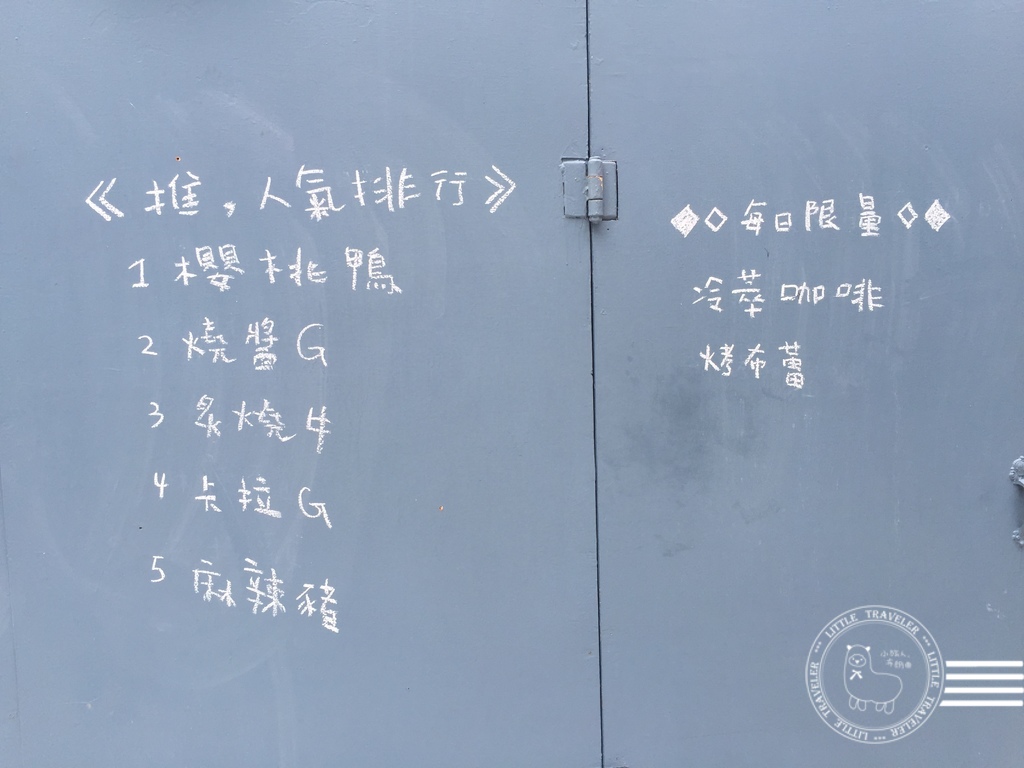 《推,人氣排行》
1 櫻桃鴨
2 燒醬G
3 炙燒牛
4 卡拉G
5 麻辣豬
◆◇每日限量◇◆
冷萃咖啡
烤布蕾
LITTLE TRAVELER ... LITTLE TRAVELER ... LITTLE TRAVELER ...
小旅人.